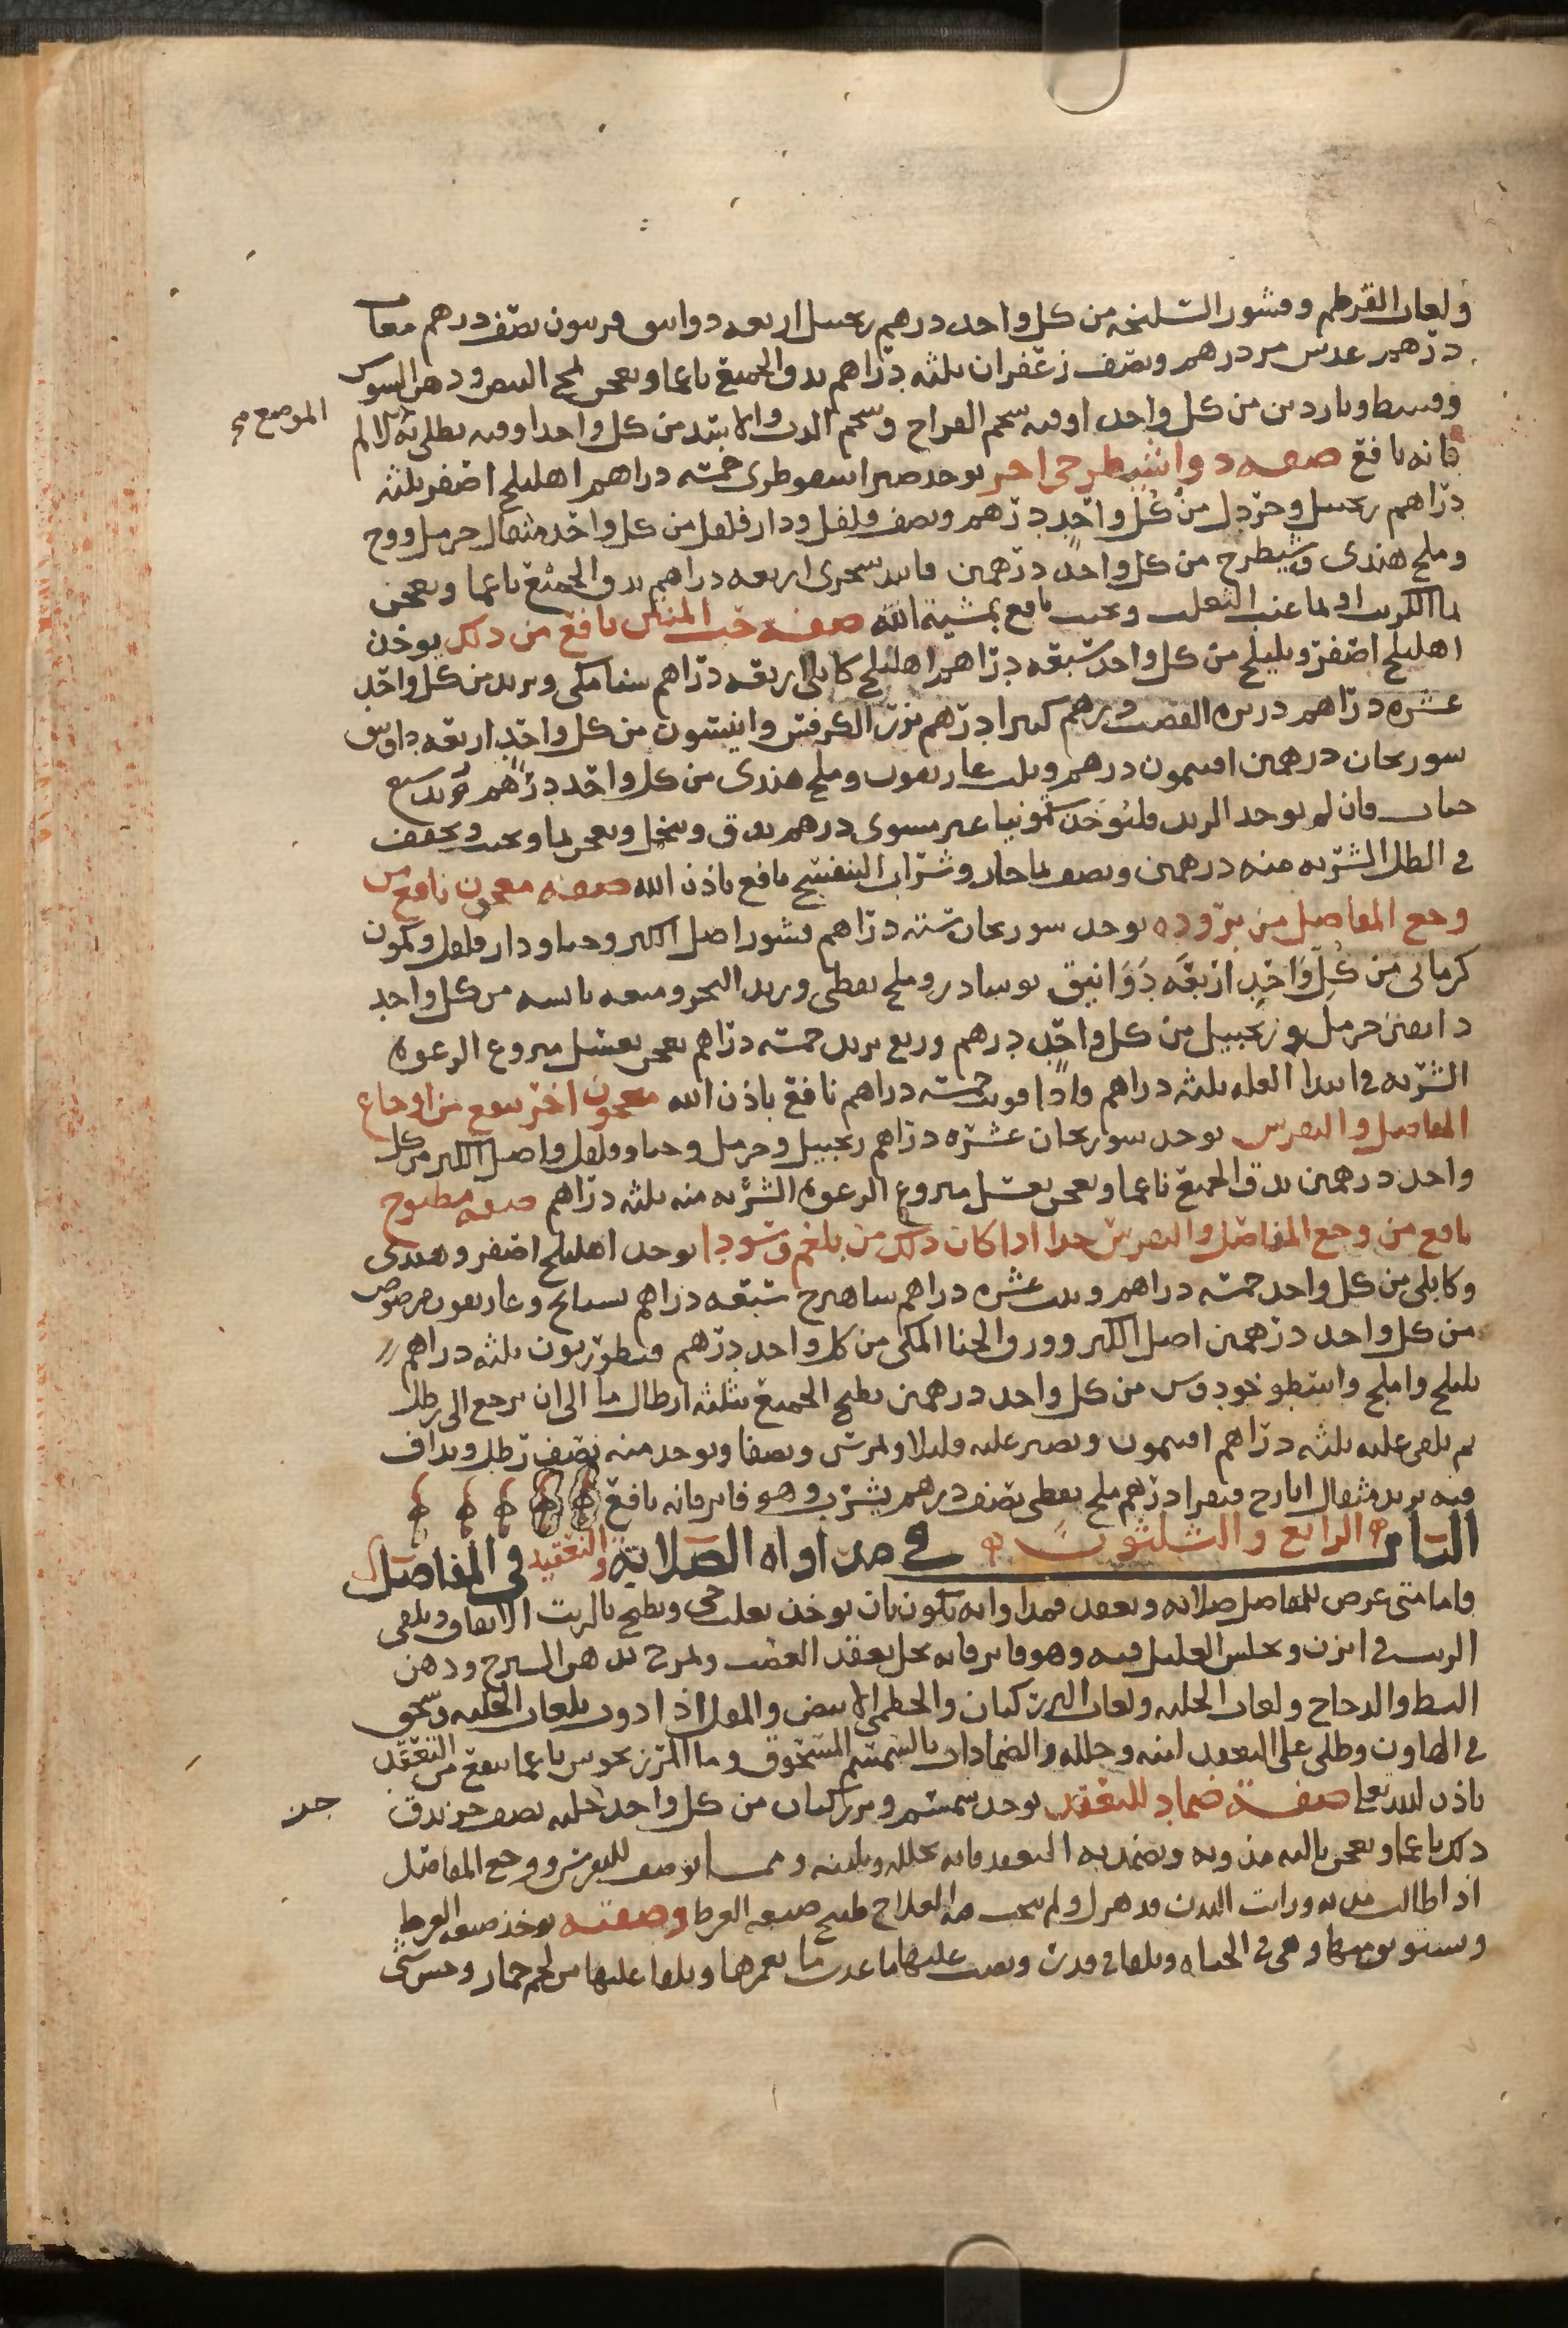 ولعاب القرطم وقشور السليخه من كل واحد درهم زنجبيل اربعه دوانيق فربيون نصف درهم مغاث
درهم عدس مر درهم ونصف زعفران ثلثه دراهم يدق الجميع ناعما ويعجن بمح البيض ودهن السوسن
وقسط وناردين من كل واحد اوقيه شحم الفراخ وشحم الدب والاسد من كل واحد اوقيه يطلى به الالم
الموضع صح
فانه نافع صفه دوا شيطرجى اخر يوخذ صبر اسقوطرى خمسه دراهم اهليلج اصفر ثلثه
دراهم زنجبيل وخردل من كل واحد درهم ونصف فلفل ودار فلفل من كل واحد مثقال حرمل ووج
وملح هندى وشيطرج من كل واحد درهمين فانيد سجزى اربعه دراهم يدق الجميع ناعما ويعجن
بما الكرنب او بما عنب الثعلب ويحبب نافع بمشية الله صفه حب المنتن نافع من ذلك يوخذ
اهليلج اصفر وبليلج من كل واحد سبعه دراهم اهليلج كابلى اربعه دراهم سنا مكى وتربد من كل واحد
عشره دراهم ذريره القصب درهم كثيرا درهم بزر الكرفس وانيسون من كل واحد اربعه دوانيق
سورنجان درهمين افتيمون درهم وثلث غاريقون وملح هندى من كل واحد درهم
فان لم يوجد التربد فليوخذ سقمونيا غير مشوى درهم يدق وينخل ويعجن بما ويحبب ويجفف
فى الظل الشربه منه درهمين ونصف بما حار وشراب البنفسج نافع باذن الله صفه معجون نافع من
وجع المفاصل من بروده يوخذ سورنجان سته دراهم قشور اصل الكبر وحنا ودار فلفل وكمون
كرمانى من كل واحد اربعه دوانيق نوشادر وملح نفطى وزبد البحر وميعه يابسه من كل واحد
دانقين حرمل وزنجبيل من كل واحد درهم وربع تربد خمسه دراهم يعجن بعسل منزوع الرغوه
الشربه فى ابتدا العله ثلثه دراهم واذا قويت خمسه دراهم نافع باذن الله معجون اخر ينفع من اوجاع
المفاصل والنقرس يوخذ سورنجان عشره دراهم زنجبيل وحرمل وحنا وفلفل واصل الكبر من كل
واحد درهمين يدق الجميع ناعما ويعجن بعسل منزوع الرغوه الشربه منه ثلثه دراهم صفه مطبوخ
نافع من وجع المفاصل والنقرس جدا اذا كان ذلك من بلغم وسودا يوخذ اهليلج اصفر وهندى
وكابلى من كل واحد خمسه دراهم وزبيب عشره دراهم شاهترج سبعه دراهم بسبايج وغاريقون مرضوض
من كل واحد درهمين اصل الكبر وورق الحنا المكى من كل واحد درهم قنطوريون ثلثه دراهم
بليلج واملج واسطوخودوس من كل واحد درهمين يطبخ الجميع بثلثه ارطال ما الى ان يرجع الى رطل
ثم يلقى عليه ثلثه دراهم افتيمون ويصبر عليه قليلا ويمرس ويصفا ويوخذ منه نصف رطل ويداف
فيه تربد مثقال ايارج فيقرا درهم ملح نفطى نصف درهم يشرب وهو فاتر فانه نافع
الباب الرابع والثلثون فى مداواة الصلابة والتعقيد فى المفاصل
واما متى عرض للمفاصل صلابه وتعقد فمداواته تكون بان يوخذ ثعلب حى ويطبخ بالزيت الانفاق ويلقى
الزيت فى ابزن ويجلس العليل فيه وهو فاتر فانه يحل تعقد العصب ويمرخ بدهن السيرج ودهن
البط والدجاج ولعاب الحلبه ولعاب البزر كتان والخطمى الابيض والمقل اذا دوف بلعاب الحلبه وسحق
فى الهاون وطلى على التعقد لينه وحلله والضمادات بالسمسم المسحوق وما المرزنجوش ناعما ينفع من التعقد
باذن الله تعالى صفة ضماد للتعقد يوخذ سمسم وبزر كتان من كل واحد حلبه نصف جز يدق
جز
ذلك ناعما ويعجن باليه مذوبه ويضمد به التعقد فانه يحلله ويلينه ومما ينفع للنقرس ووجع المفاصل
اذا طالت مدته ورايت البدن قد هزل ولم ينجب فيه العلاج طبيخ ضبعه العرجا وصفته يوخذ ضبعه العرجا
وتستوثق منها وهى فى الحياه ويلقا فى قدر ويصب عليها ما عذب ما يغمرها ويلقا عليها من لحم حمار وحش شى